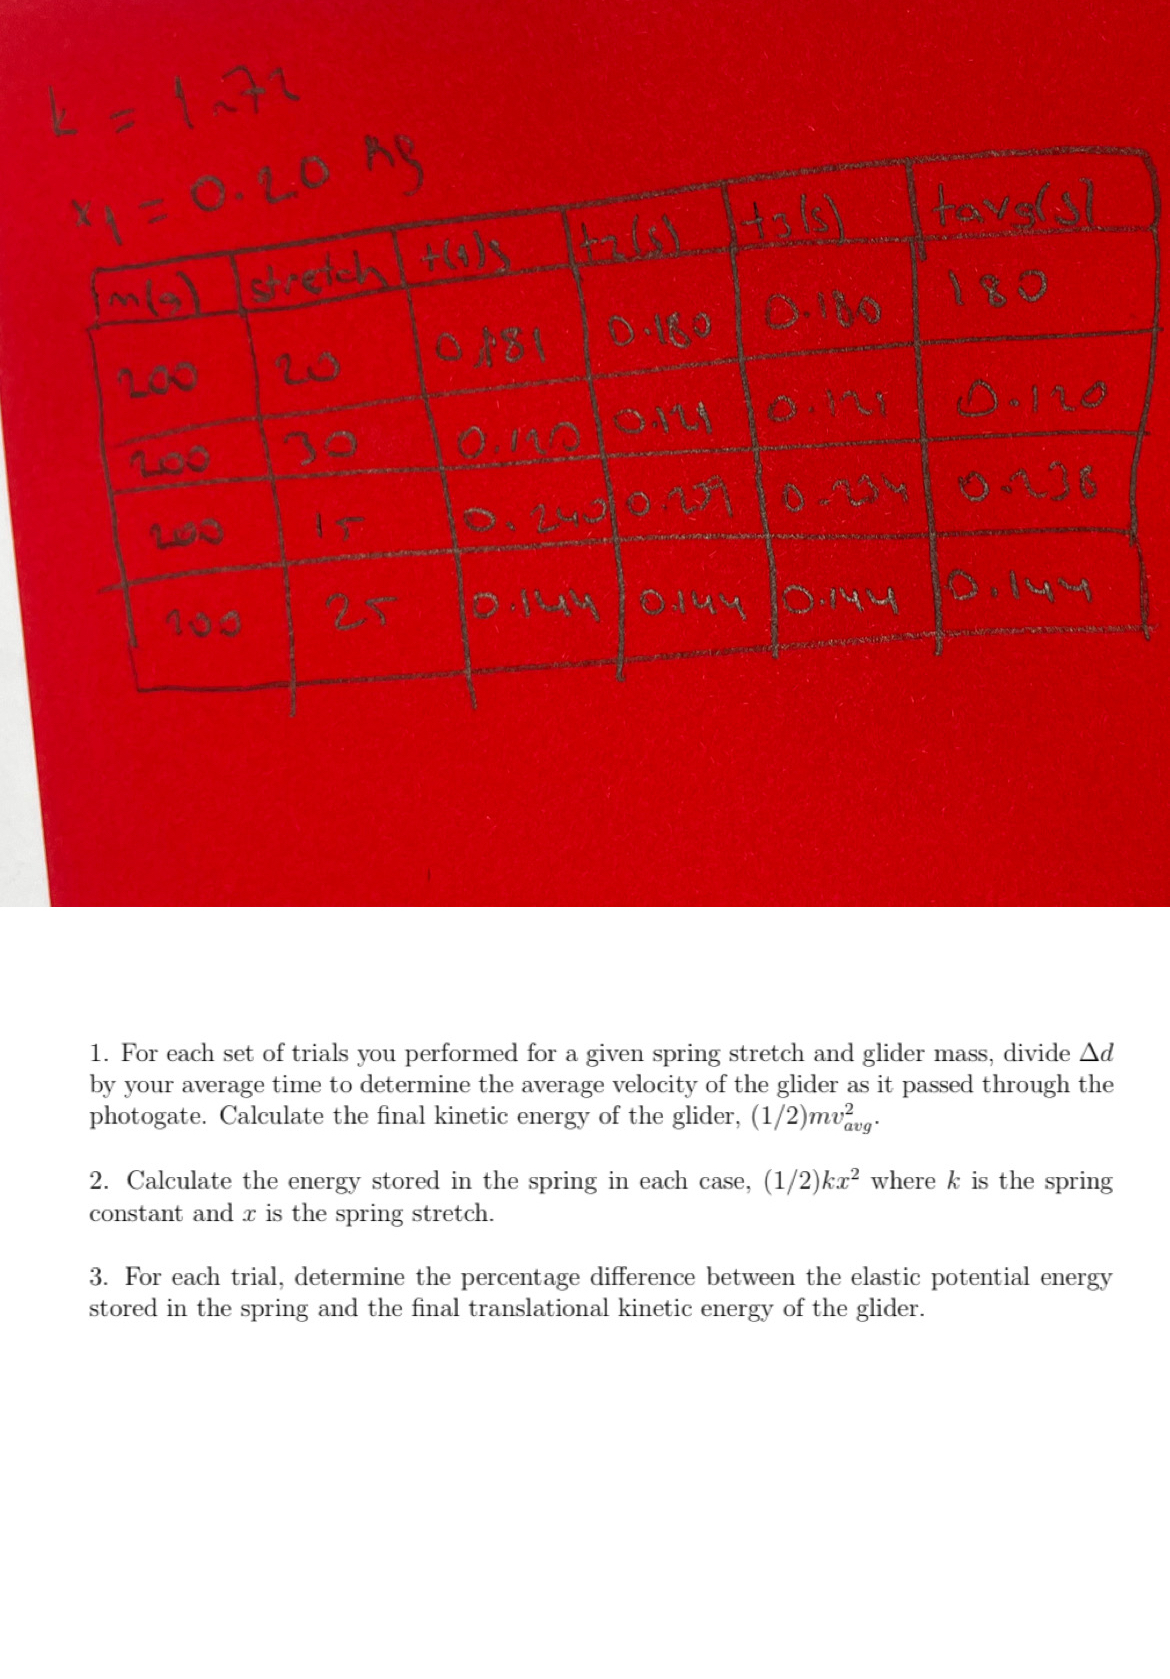 k = 1.72
x1 = 0.20 kg
m(g) stretch t(1)s t2(s) t3(s) tavg(s)
200 20 0.181 0.180 0.180 180
200 30 0.120 0.121 0.121 0.120
200 15 0.240 0.239 0.234 0.238
200 25 0.144 0.144 0.144 0.144
1. For each set of trials you performed for a given spring stretch and glider mass, divide Δd
by your average time to determine the average velocity of the glider as it passed through the
photogate. Calculate the final kinetic energy of the glider, (1/2)mv²avg.
2. Calculate the energy stored in the spring in each case, (1/2)kx² where k is the spring
constant and x is the spring stretch.
3. For each trial, determine the percentage difference between the elastic potential energy
stored in the spring and the final translational kinetic energy of the glider.